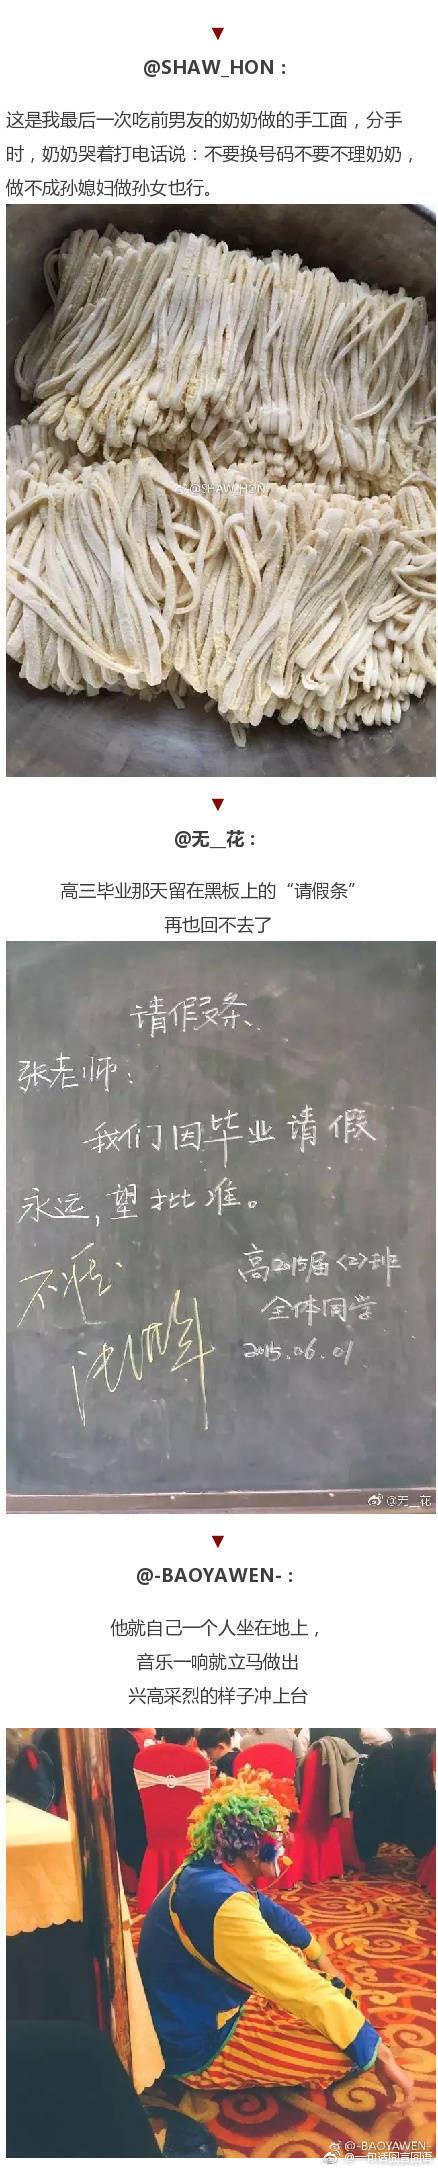 @SHAW_HON：
这是我最后一次吃前男友的奶奶做的手工面，分手
时，奶奶哭着打电话说：不要换号码不要不理奶奶，
做不成孙媳妇做孙女也行。
@SHAW_HON
@无__花：
高三毕业那天留在黑板上的“请假条”
再也回不去了
请假条
张老师：
我们因毕业请假
永远，望批准。
不准
高2015届<2>班
全体同学
2015.06.01
@无__花
@-BAOYAWEN-：
他就自己一个人坐在地上，
音乐一响就立马做出
兴高采烈的样子冲上台
@-BAOYAWEN-